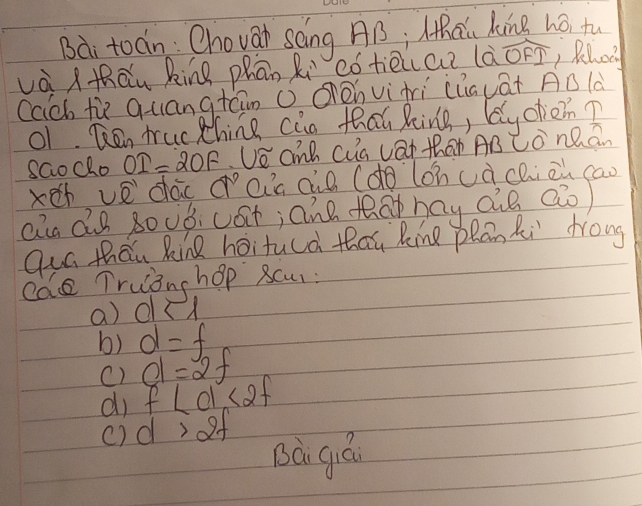 Bài toán: Cho vật sáng AB; 1 thấu kính hội tụ
và 1 thấu kính phân kì có tiêu cự là OF = f, khoảng
cách từ quang tâm O đến vị trí của vật AB là
d. Trên trục chính của thấu kính, lấy điểm I
sao cho OI = 2OF. Vẽ ảnh của vật thật AB và nhận
xét về đặc đ' của ảnh (độ lớn và chiều cao
của ảnh so với vật; ảnh thật hay ảnh ảo)
qua thấu kính hội tụ và thấu kính phân kì trong
các Trường hợp sau:
a) d < f
b) d = f
c) d = 2f
d) f < d < 2f
e) d > 2f
Bài giải